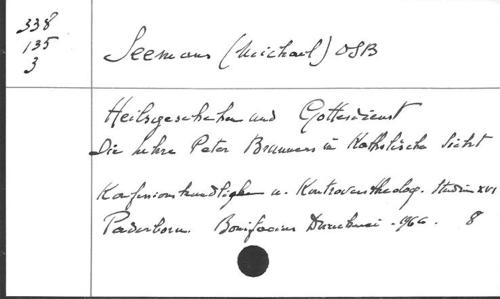 338
135
3
Seemann (Michael) OSB
Heilsgeschehen und Gottesdienst
Die Lehre Peter Brunners in Katholischer Sicht
Konfessionskundlichen u. Kontroverstheolog. Studien XVI
Paderborn. Bonifacius Druckerei - 1966. 8